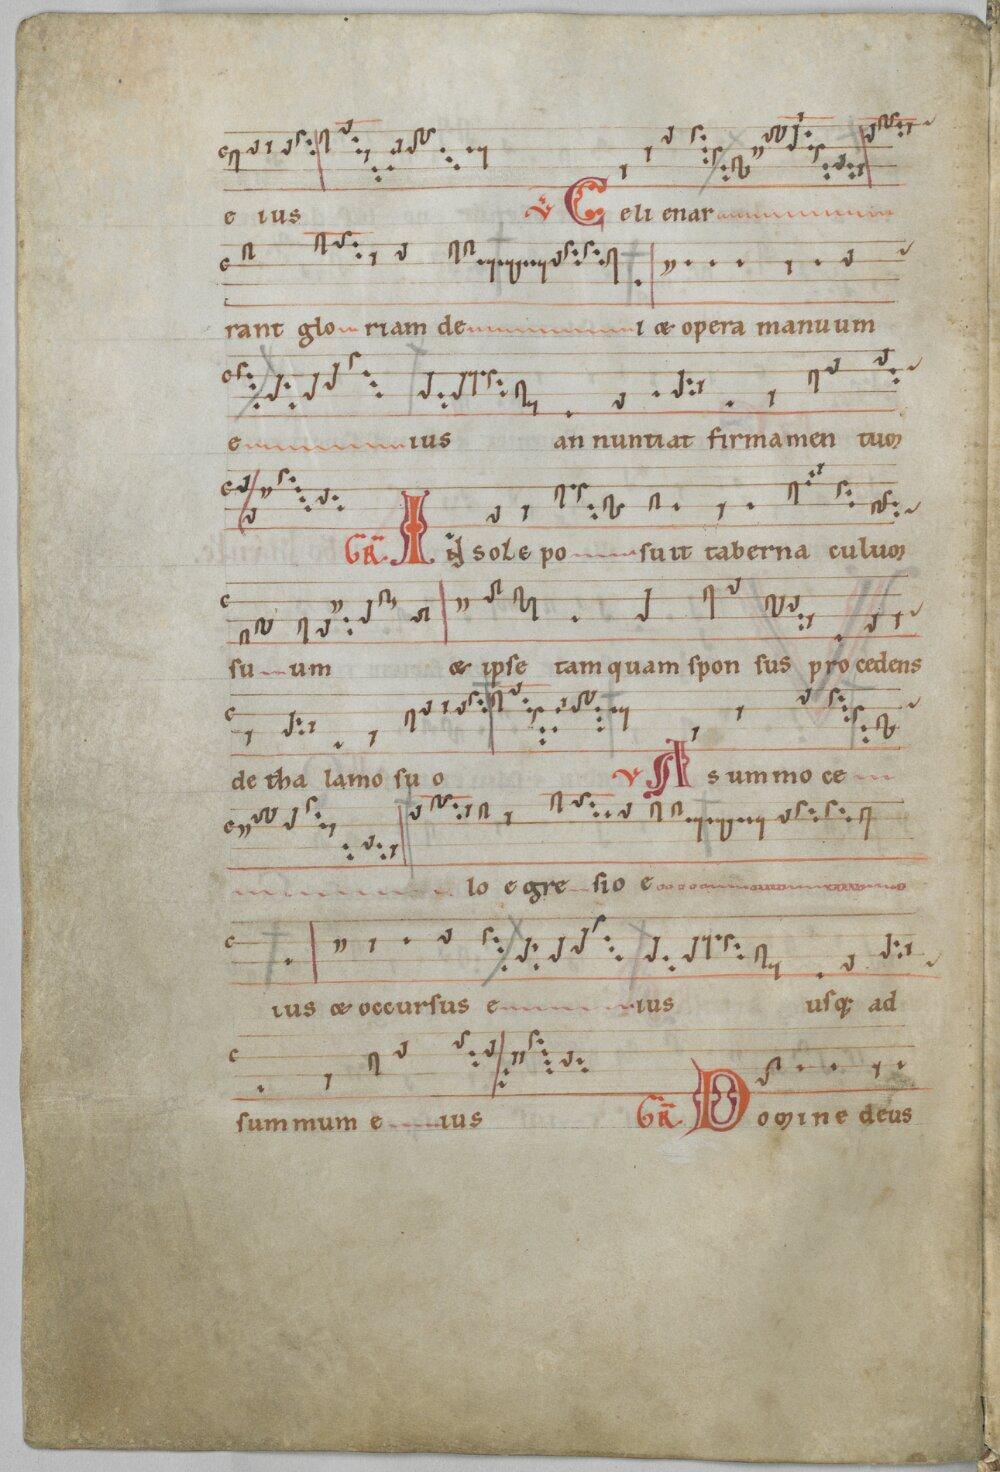 e ius ℣ Celi enar
rant glo riam de i & opera manuum
e ius an nuntiat firmamen tum
GR IN sole po suit taberna culum
su um & ipse tam quam spon sus pro cedens
de tha lamo su o ℣ A summo ce
lo e gre sio e
ius & occursus e ius usq; ad
summum e ius GR Domine deus